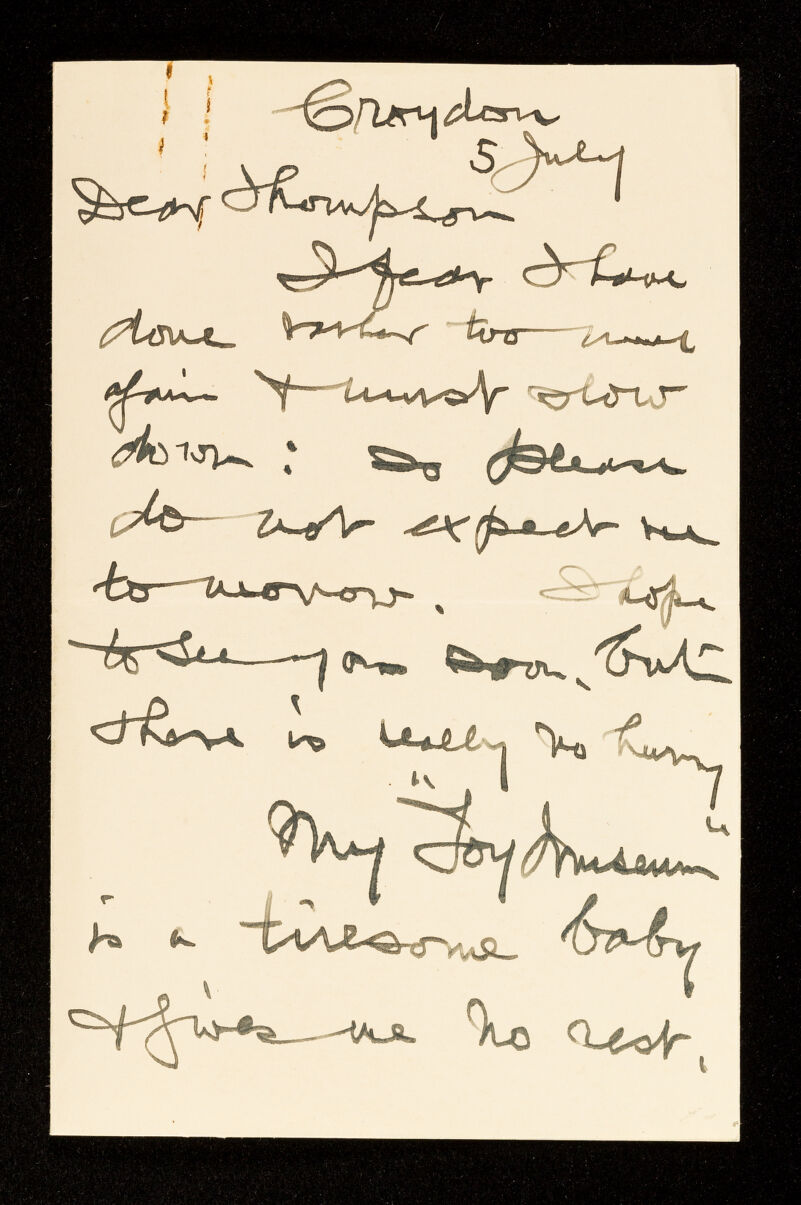 Croydon
5 July
Dear Thompson
I fear I have
done rather too much
again & must slow
down: So please
do not expect me
tomorrow. I hope
to see you soon, but
there is really no hurry
My "Toy Museum"
is a tiresome baby
& gives me no rest.